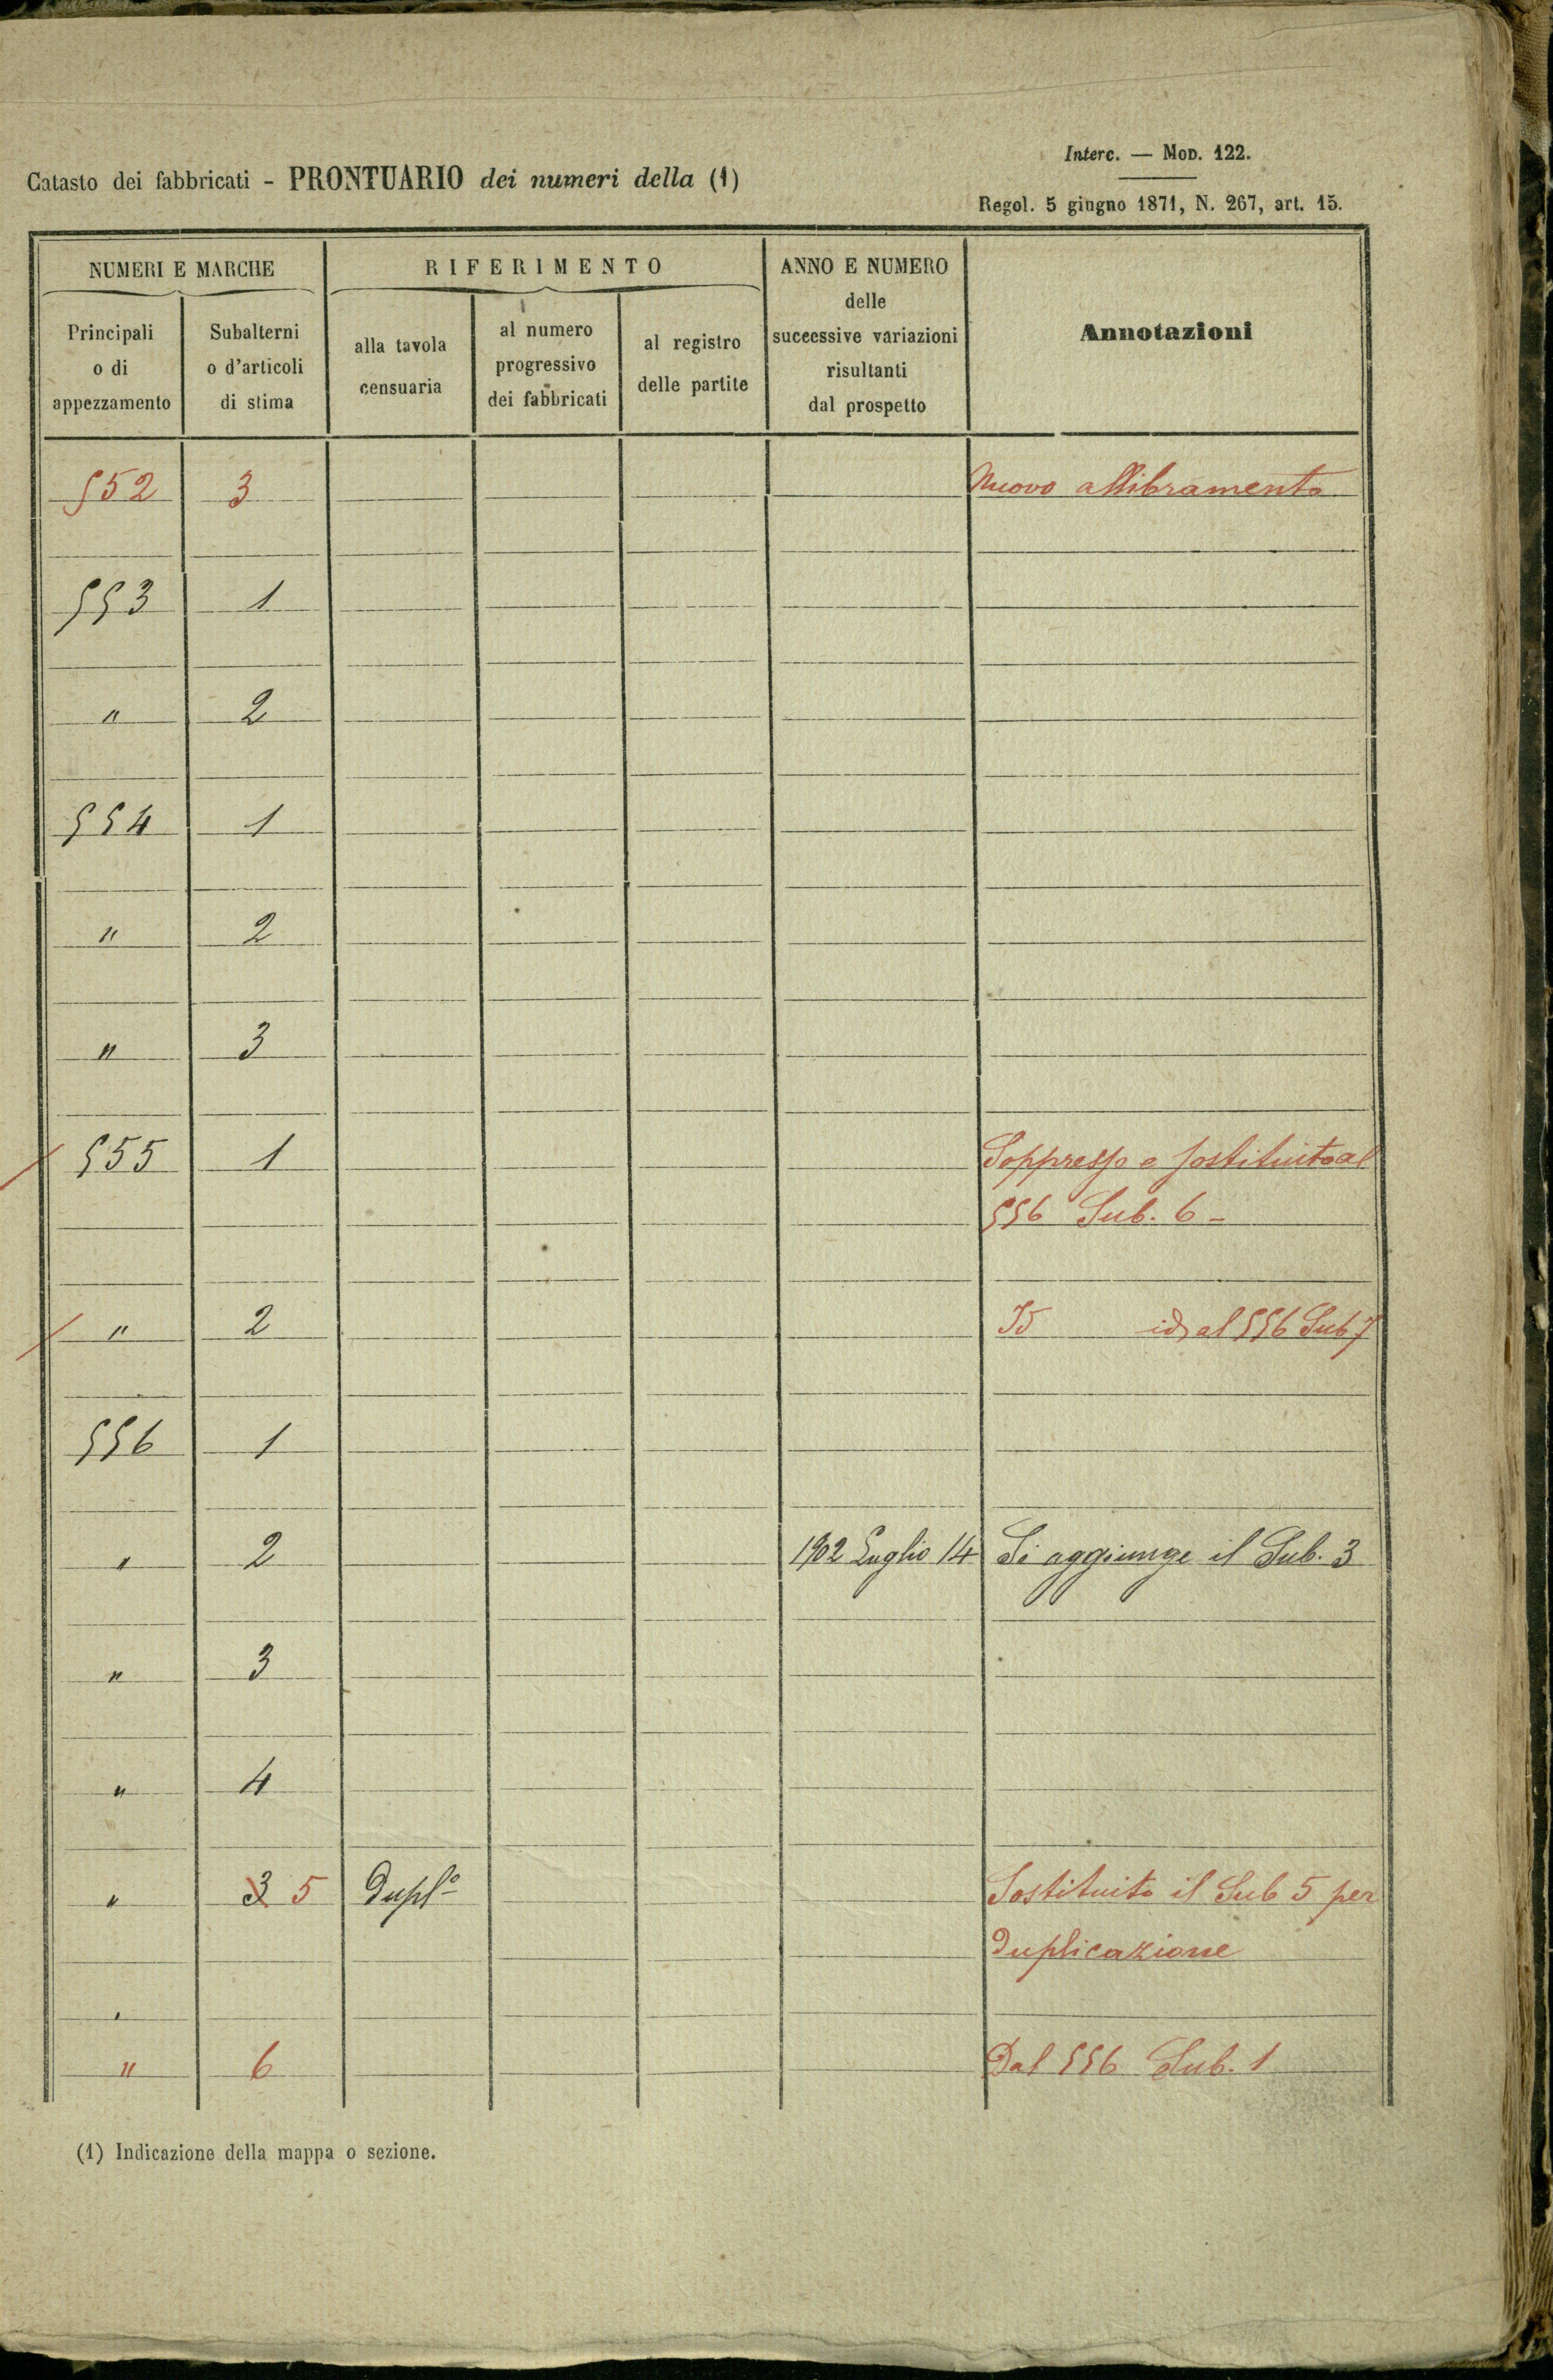 Interc. — Mod. 122.
Catasto dei fabbricati - PRONTUARIO dei numeri della (1)
Regol. 5 giugno 1871, N. 267, art. 15.
NUMERI E MARCHE
RIFERIMENTO
ANNO E NUMERO
delle
successive variazioni
risultanti
dal prospetto
Annotazioni
Principali
o di
appezzamento
Subalterni
o d'articoli
di stima
alla tavola
censuaria
al numero
progressivo
dei fabbricati
al registro
delle partite
552 3 Nuovo allibramento
553 1
" 2
554 1
" 2
" 3
555 1 Soppresso e sostituito al
556 Sub. 6 -
" 2 id al 556 Sub 7
556 1
" 2 1902 Luglio 14 Si aggiunge il Sub. 3
" 3
" 4
" 3 5 Duplº Sostituito il Sub 5 per
duplicazione
" 6 Dal 556 Sub. 1
(1) Indicazione della mappa o sezione.